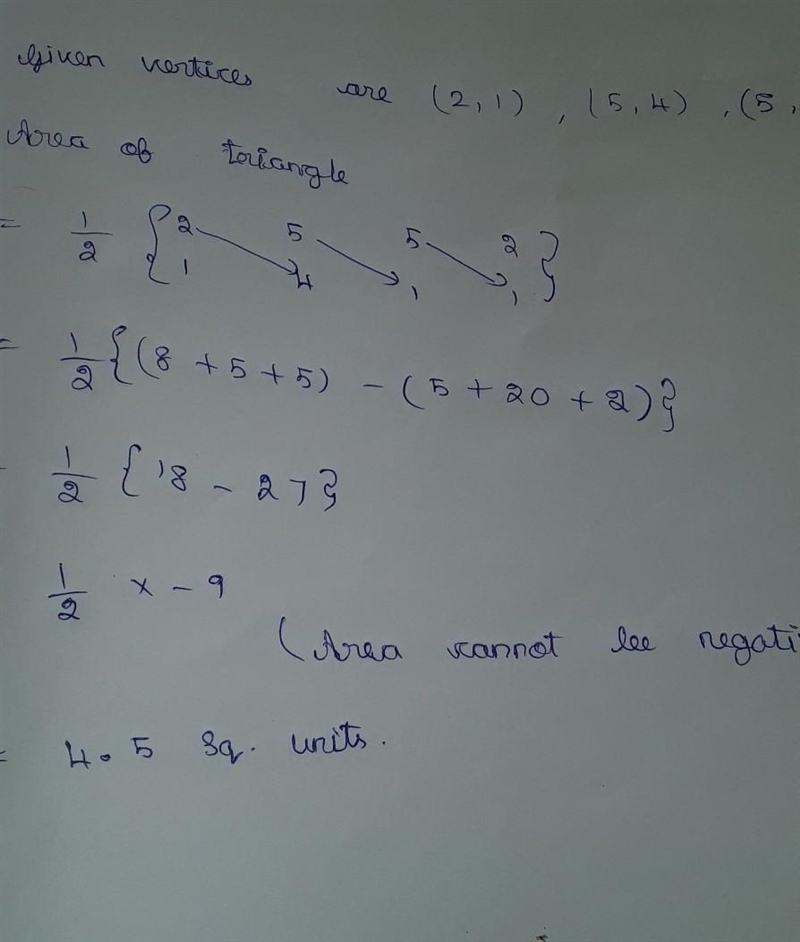 Given vertices are (2, 1) , (5, 4) , (5,
Area of triangle
= 1/2 { 2 5 5 2
1 4 1 1 }
= 1/2 {(8 + 5 + 5) - (5 + 20 + 2)}
- 1/2 { 18 - 27}
1/2 x - 9
(Area cannot be negati
= 4.5 sq. units.